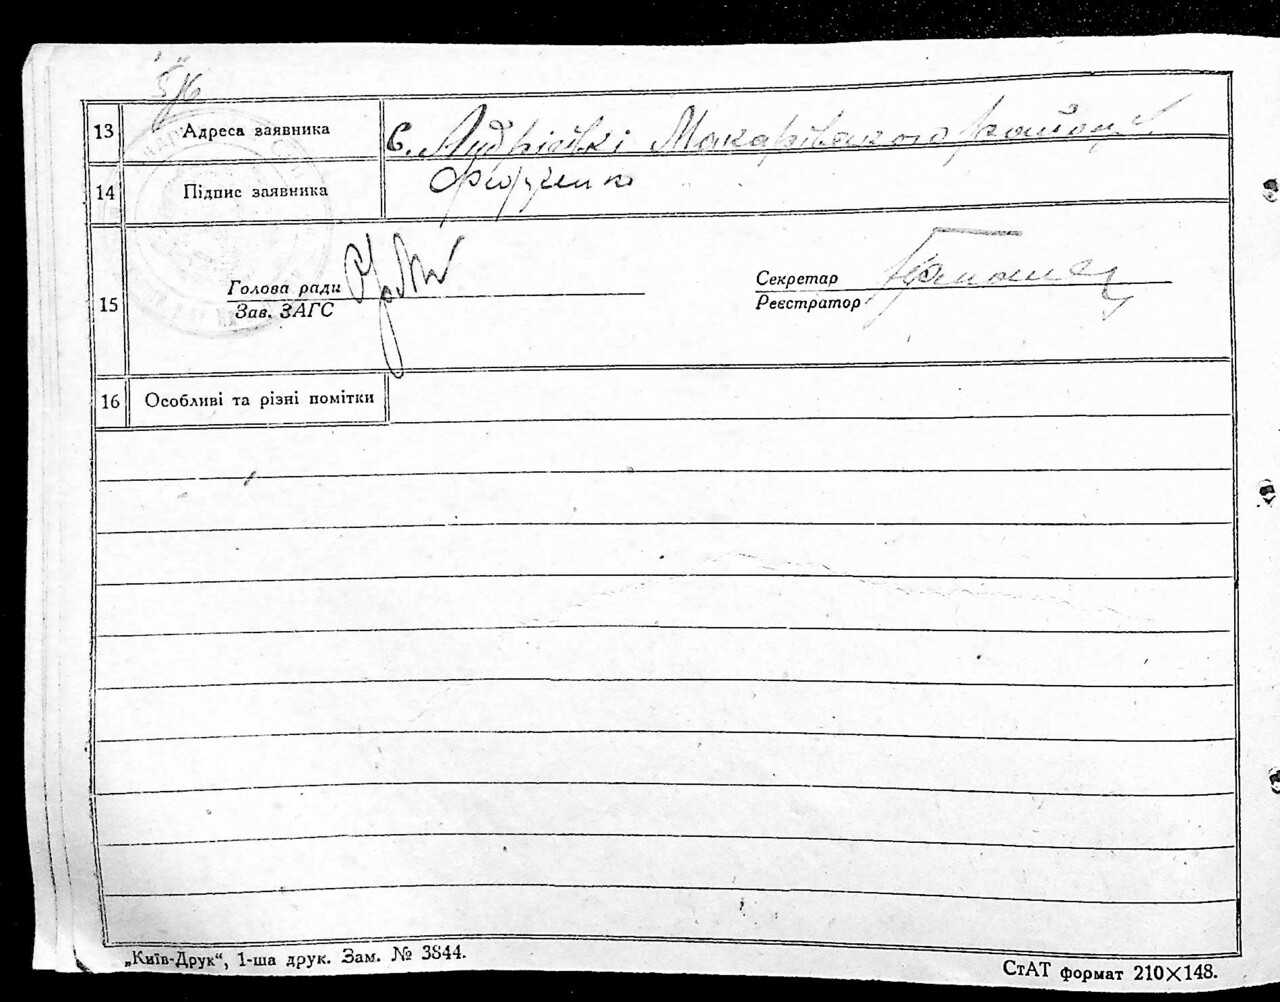 13 Адреса заявника с. Андріївкі Макарівського району
14 Підпис заявника
15 Голова ради Секретар
Зав. ЗАГС Реєстратор
16 Особливі та різні помітки
„Київ-Друк“, 1-ша друк. Зам. № 3844.
СтАТ формат 210×148.